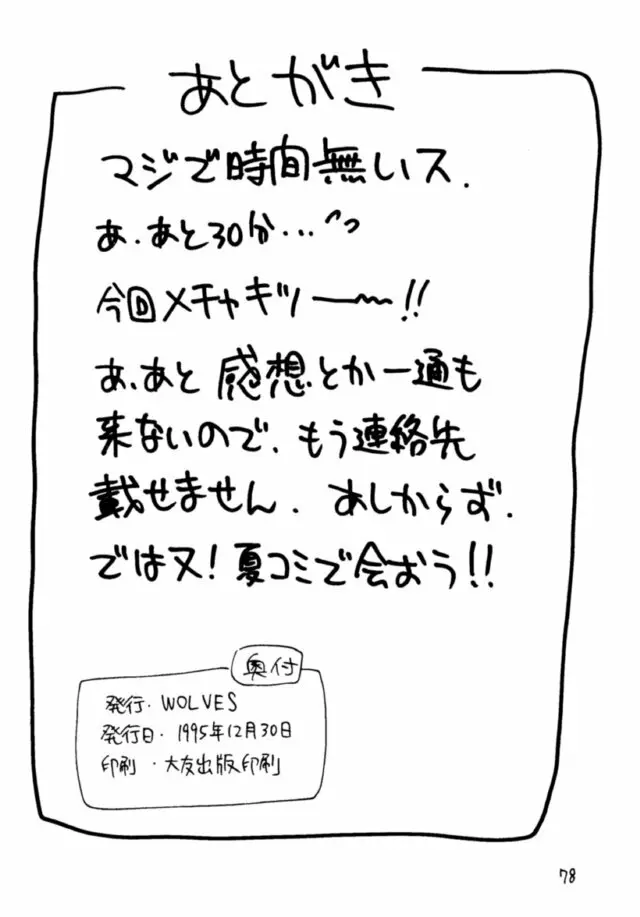 あとがき
マジで時間無いス.
あ.あと30分...^っ
今回メチャキツー〜!!
あ.あと感想とか一通も
来ないので.もう連絡先
載せません.あしからず.
では又!夏コミで会おう!!
奥付
発行.WOLVES
発行日.1995年12月30日
印刷.大友出版印刷
78